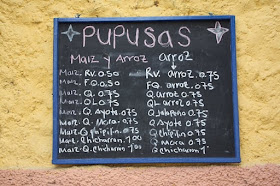 PUPUSAS
Maiz y Arroz
arroz
Maiz. RV. 0.50
Maiz. F.Q. 0.50
Maiz. Q. 0.75
Maiz. Q LO.75
Maiz. Q. Ayote. 0.75
Maiz. Q. Mora. 0.75
Maiz. Q. 0.75
Maiz. Q. Chicharron. 1.00
Maiz. Q. Chicharron. 1.00
Rv. arroz. 0.75
FQ. arroz. 0.75
Q arroz. 0.75
QL arroz 0.75
Q Jalapeño. 0.75
Q Ayote. 0.75
Q chipilin. 0.75
Q Mora 0.75
Q chicharron 1